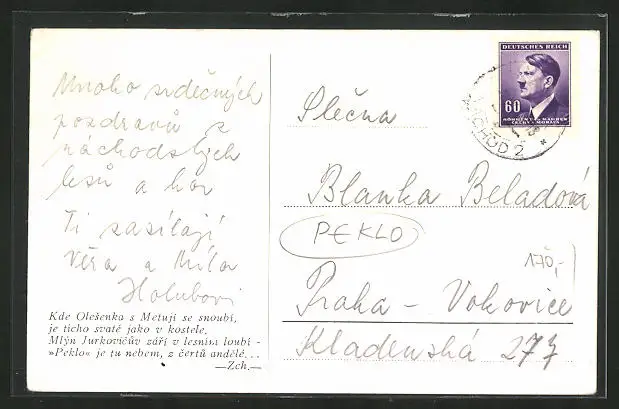 Mnoho srdečných
pozdravů z
náchodských
lesů a hor
Ti zasílají
Věra a Míla
Holubovi
Kde Olešenka s Metují se snoubí,
je ticho svaté jako v kostele,
Mlýn Jurkovičův září v lesním loubí -
»Peklo« je tu nebem, z čertů andělé...
—Zch.—
DEUTSCHES REICH
60
BÖHMEN U. MÄHREN
ČECHY A MORAVA
NÁCHOD 2
Slečna
Blanka Beladová
PEKLO
170,-
Praha - Vokovice
Kladenská 277